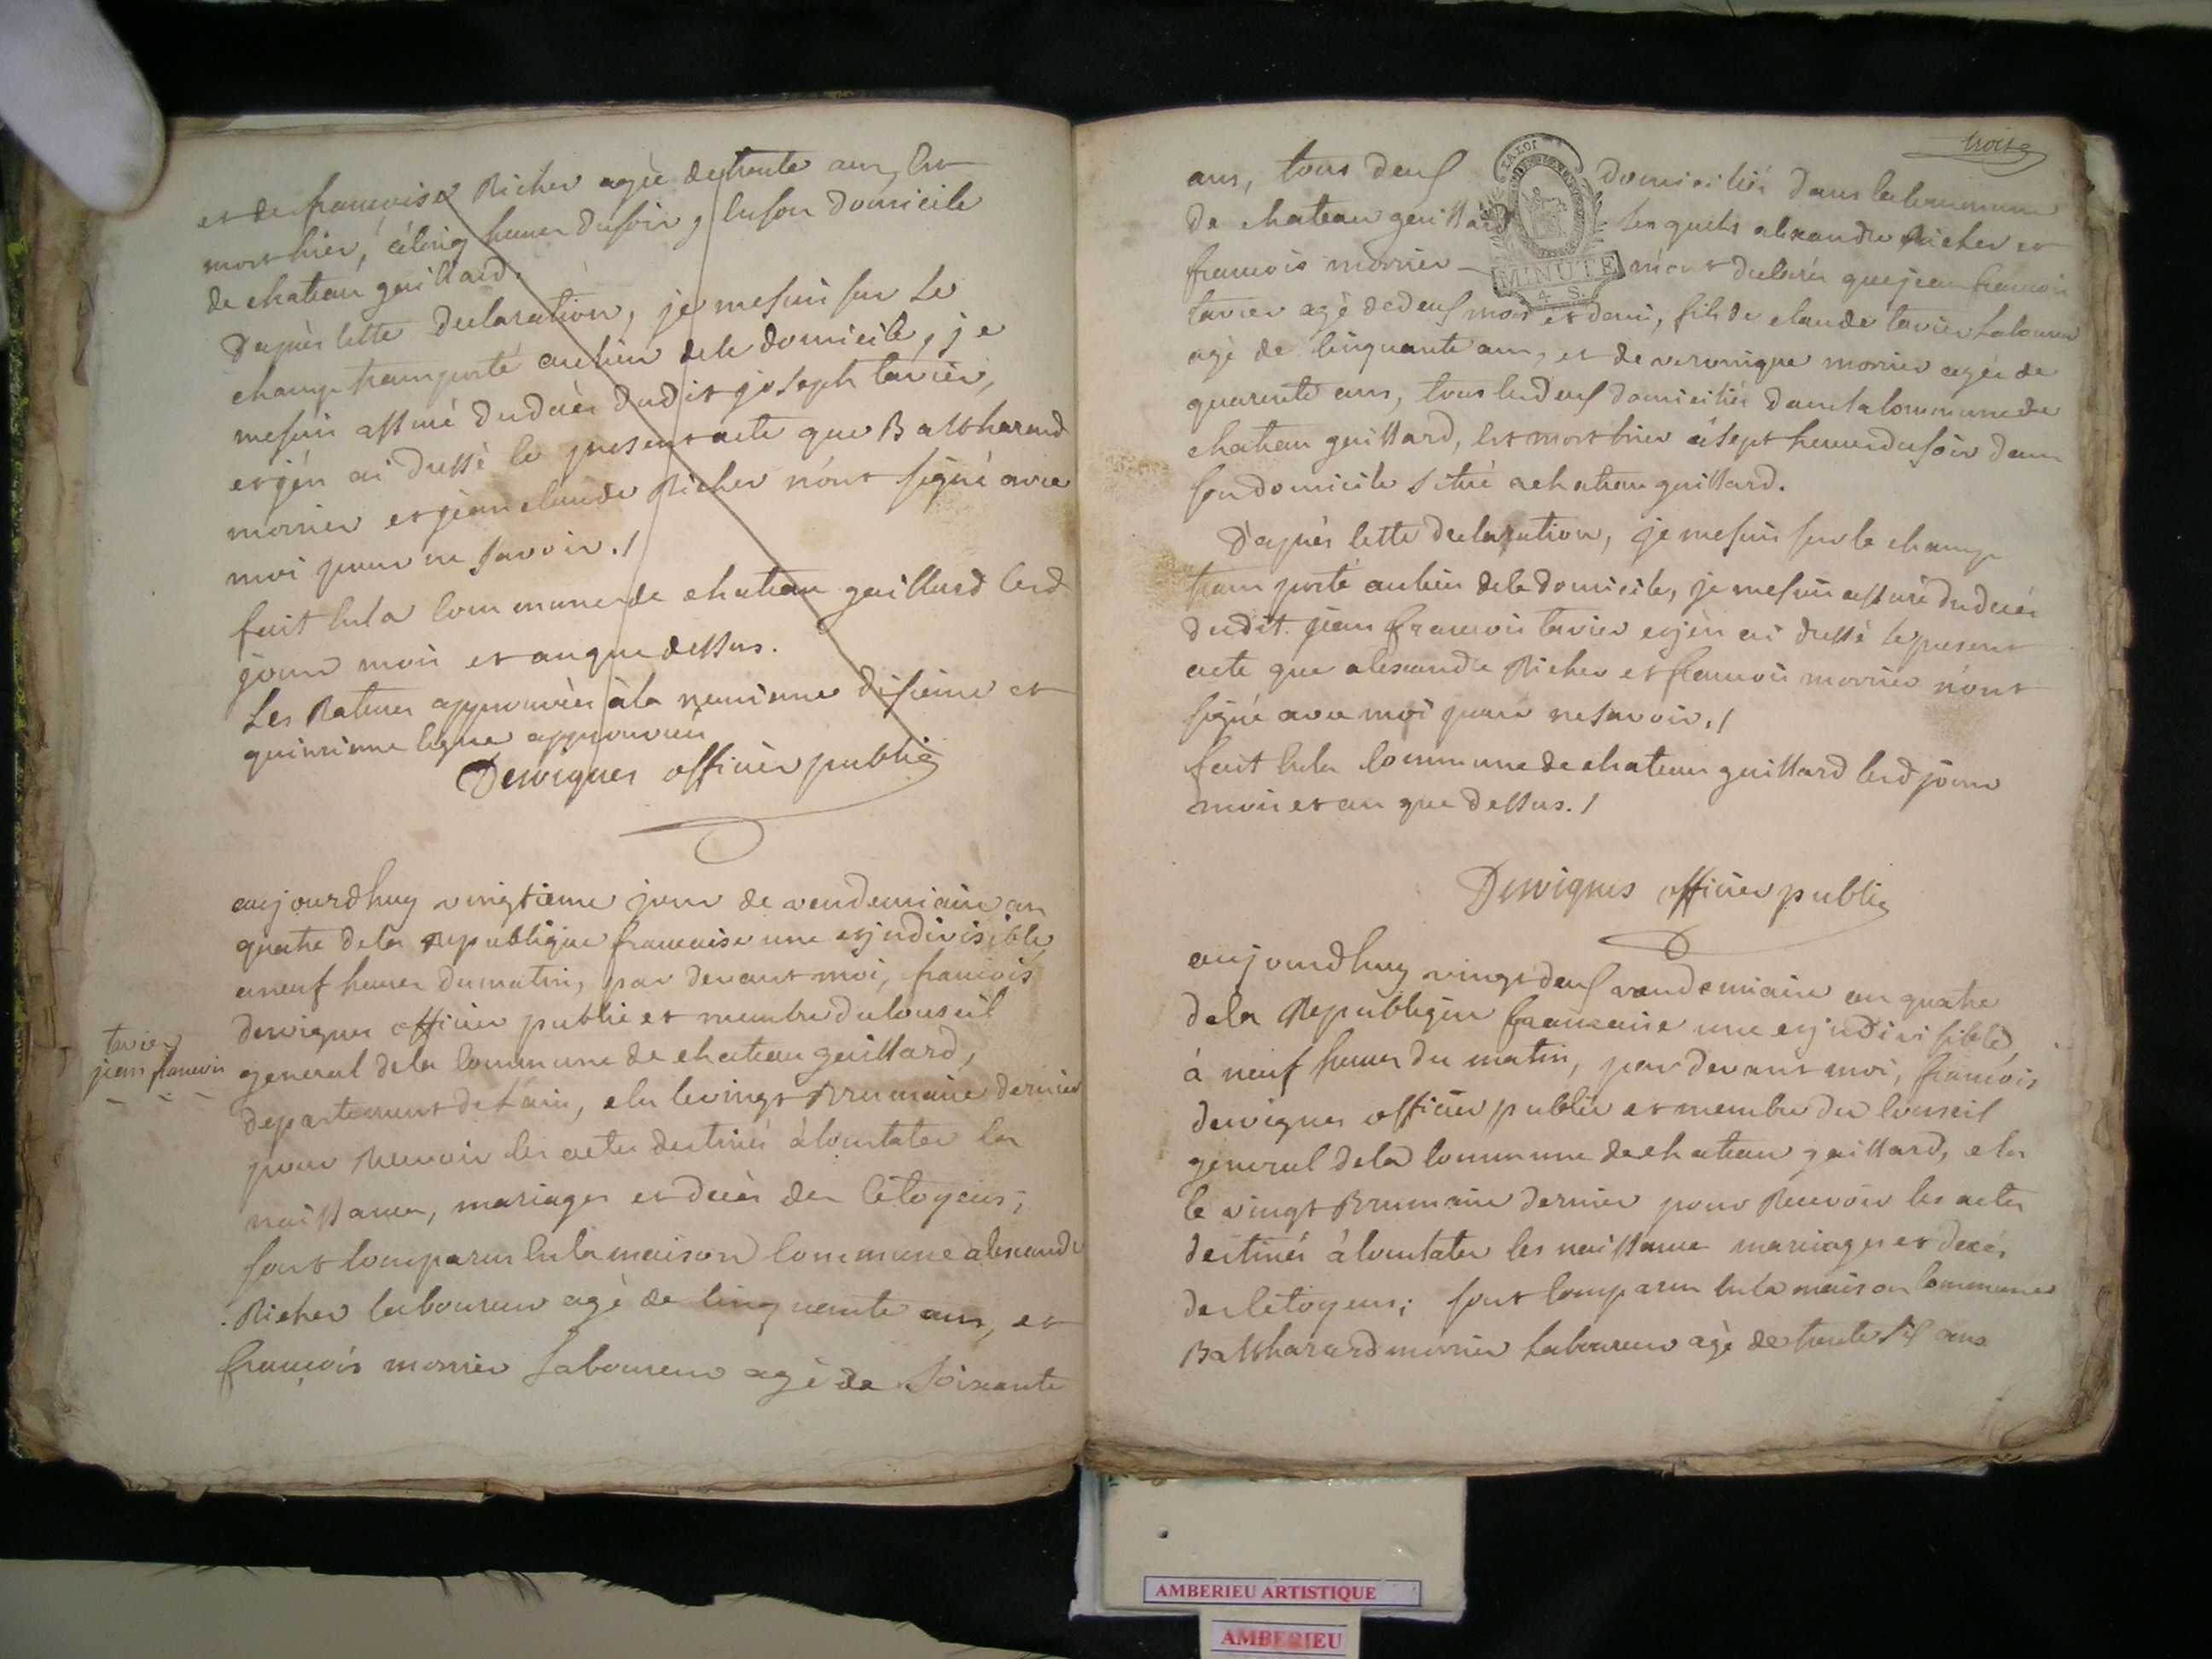 et de francoise Richer agèe de trente ans, Est
mort hier, à cinq heures du soir, en son domicile
de chateau gaillard.
D'après cette declaration, je me suis sur Le
champ transporté au lieu de ce domicile, je
me suis assuré du decès dudit joseph tavier,
et j'en ai dressé le present acte que Balthazard
monier et jean claude Richer n'ont signé avec
moi pour ne savoir./
fait en la commune de chateau gaillard lesd
jour mois et an que dessus.
Les Ratures approuvées à la neuvieme dixieme et
quinzieme ligne approuvées
Dervignes officier public
aujourdhuy vingtieme jour de vendemiaire an
quatre de la Republique francaise une et jndivisible,
a neuf heures du matin, par devant moi, francois
dervignes officier public et membre du conseil
tavier
jean francois
general de la commune de chateau gaillard,
departement de L'ain, elu le vingt Brumaire dernier
pour Recevoir les actes destinés à constater les
naissances, mariages et decès des Citoyens;
sont comparus en la maison commune alexandre
Richer laboureur agè de cinquante ans, et
françois monier Laboureur agè de Soixante
trois
ans, tous deux domiciliés dans la commune
LA LOI
de chateau gaillard Lesquels alexandre Richer et
francois monier m'ont declarés que jean francois
MINUTE
4. S.
tavier agè de deux mois et demi, fils de claude tavier Laboureur
agè de cinquante ans, et de veronique monier agée de
quarente ans, tous les deux domiciliés dans la commune de
chateau gaillard, est mort hier à sept heures du soir dans
son domicile situé a chateau gaillard.
D'après cette declaration, je me suis sur le champ
transporté au lieu de ce domicile, je me suis assuré du decès
dudit jean francois tavier et j'en ai dressé le present
acte que alexandre Richer et francois monier n'ont
signé avec moi pour ne savoir./
fait en la Commune de chateau gaillard lesd jour
mois et an que dessus./
Dervignes officier public
aujourdhuy vingt deux vendemiaire an quatre
de la Republique francaise une et jndivisible
à neuf heures du matin, par devant moi, francois
dervignes officier public et membre du conseil
general de la commune de chateau gaillard, elu
le vingt Brumaire dernier pour Recevoir les actes
destinés à constater les naissance mariages et decés
des Citoyens; sont comparus en la maison commune
Balthazard monier Laboureur agè de trente six ans
AMBERIEU ARTISTIQUE
AMBERIEU